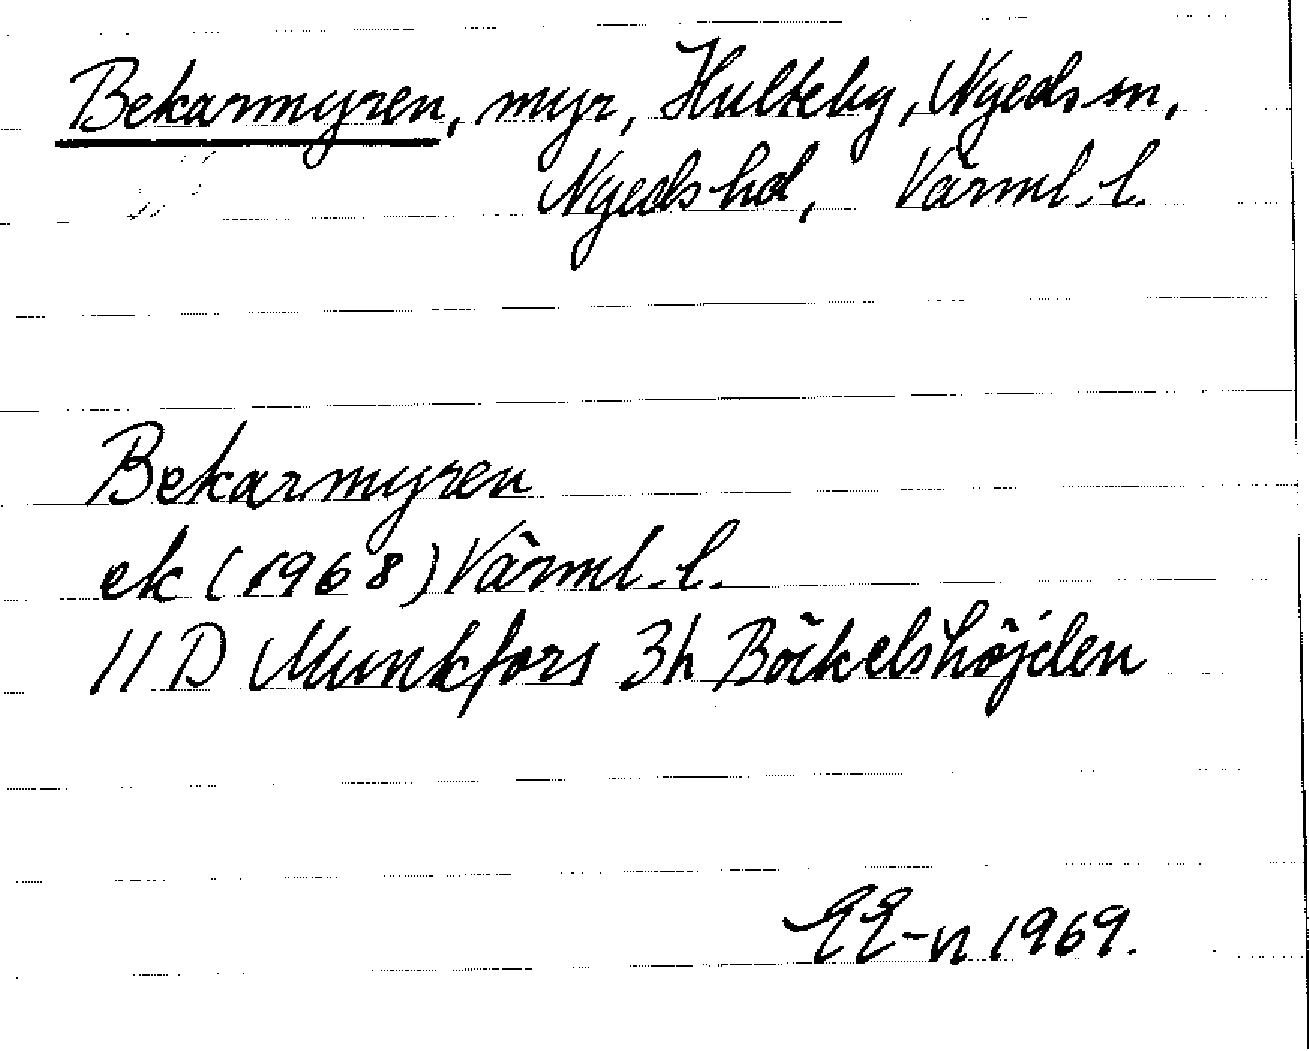 Bekarmyren, myr, Hulteby, Nyeds sn,
Nyeds hd, Värml. l.
Bekarmyren
ek (1968) Värml. l.
11 D Munkfors 3h Böckelshöjden
EE-n 1969.